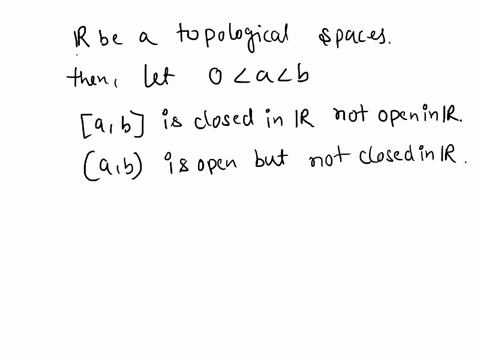 ℝ be a topological spaces.
then, let 0 < a < b
[a, b] is closed in ℝ not open in ℝ.
(a, b) is open but not closed in ℝ.